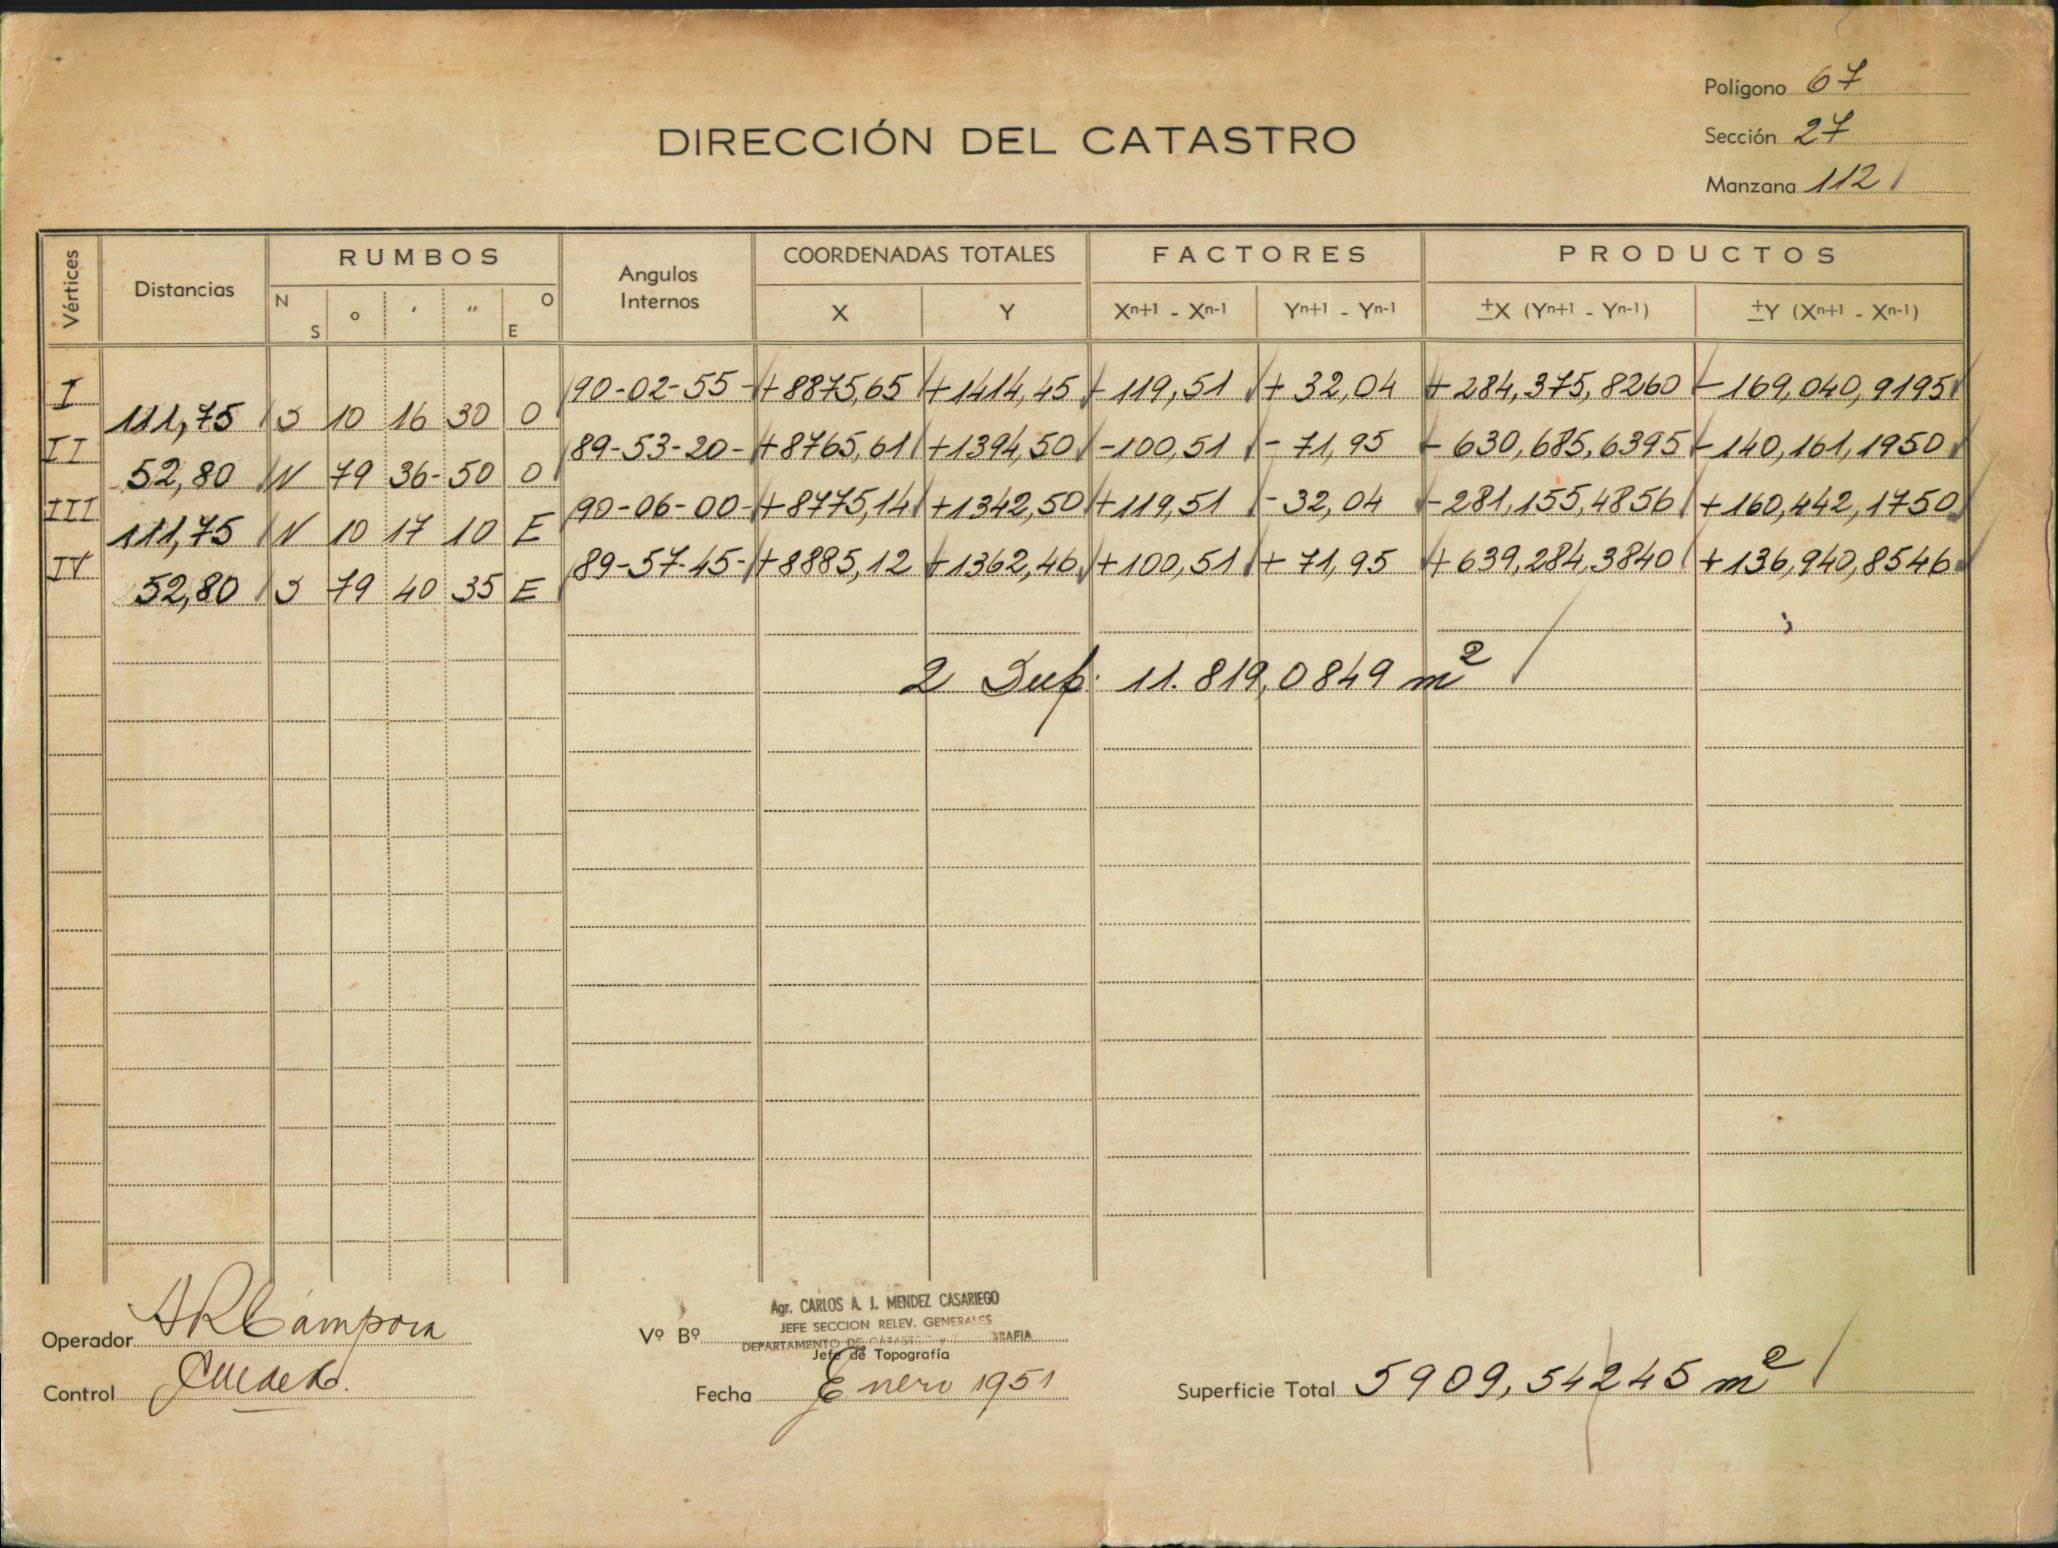 Polígono 67
DIRECCIÓN DEL CATASTRO
Sección 27
Manzana 112
Vértices Distancias RUMBOS Angulos Internos COORDENADAS TOTALES FACTORES PRODUCTOS
N S ° ' " O E X Y Xn+1 - Xn-1 Yn+1 - Yn-1 ±X (Yn+1 - Yn-1) ±Y (Xn+1 - Xn-1)
I 90-02-55- +8875,65 +1414,45 -119,51 + 32,04 + 284,375,8260 - 169,040,9195
111,75 S 10 16 30 O
II 89-53-20- +8765,61 +1394,50 -100,51 - 71,95 - 630,685,6395 - 140,161,1950
52,80 N 79 36- 50 O
III 90-06-00- +8775,14 +1342,50 +119,51 - 32,04 - 281,155,4856 + 160,442,1750
111,75 N 10 17 10 E
IV 89-57-45- +8885,12 +1362,46 +100,51 + 71,95 + 639,284,3840 + 136,940,8546
52,80 S 79 40 35 E
2 Sup. 11.819,0849 m²
Operador A R Cámpora
Vº Bº Agr. CARLOS A. J. MENDEZ CASARIEGO
JEFE SECCION RELEV. GENERALES
DEPARTAMENTO DE CATASTRO
Jefe de Topografía
Control
Fecha Enero 1951
Superficie Total 5909,54245 m²